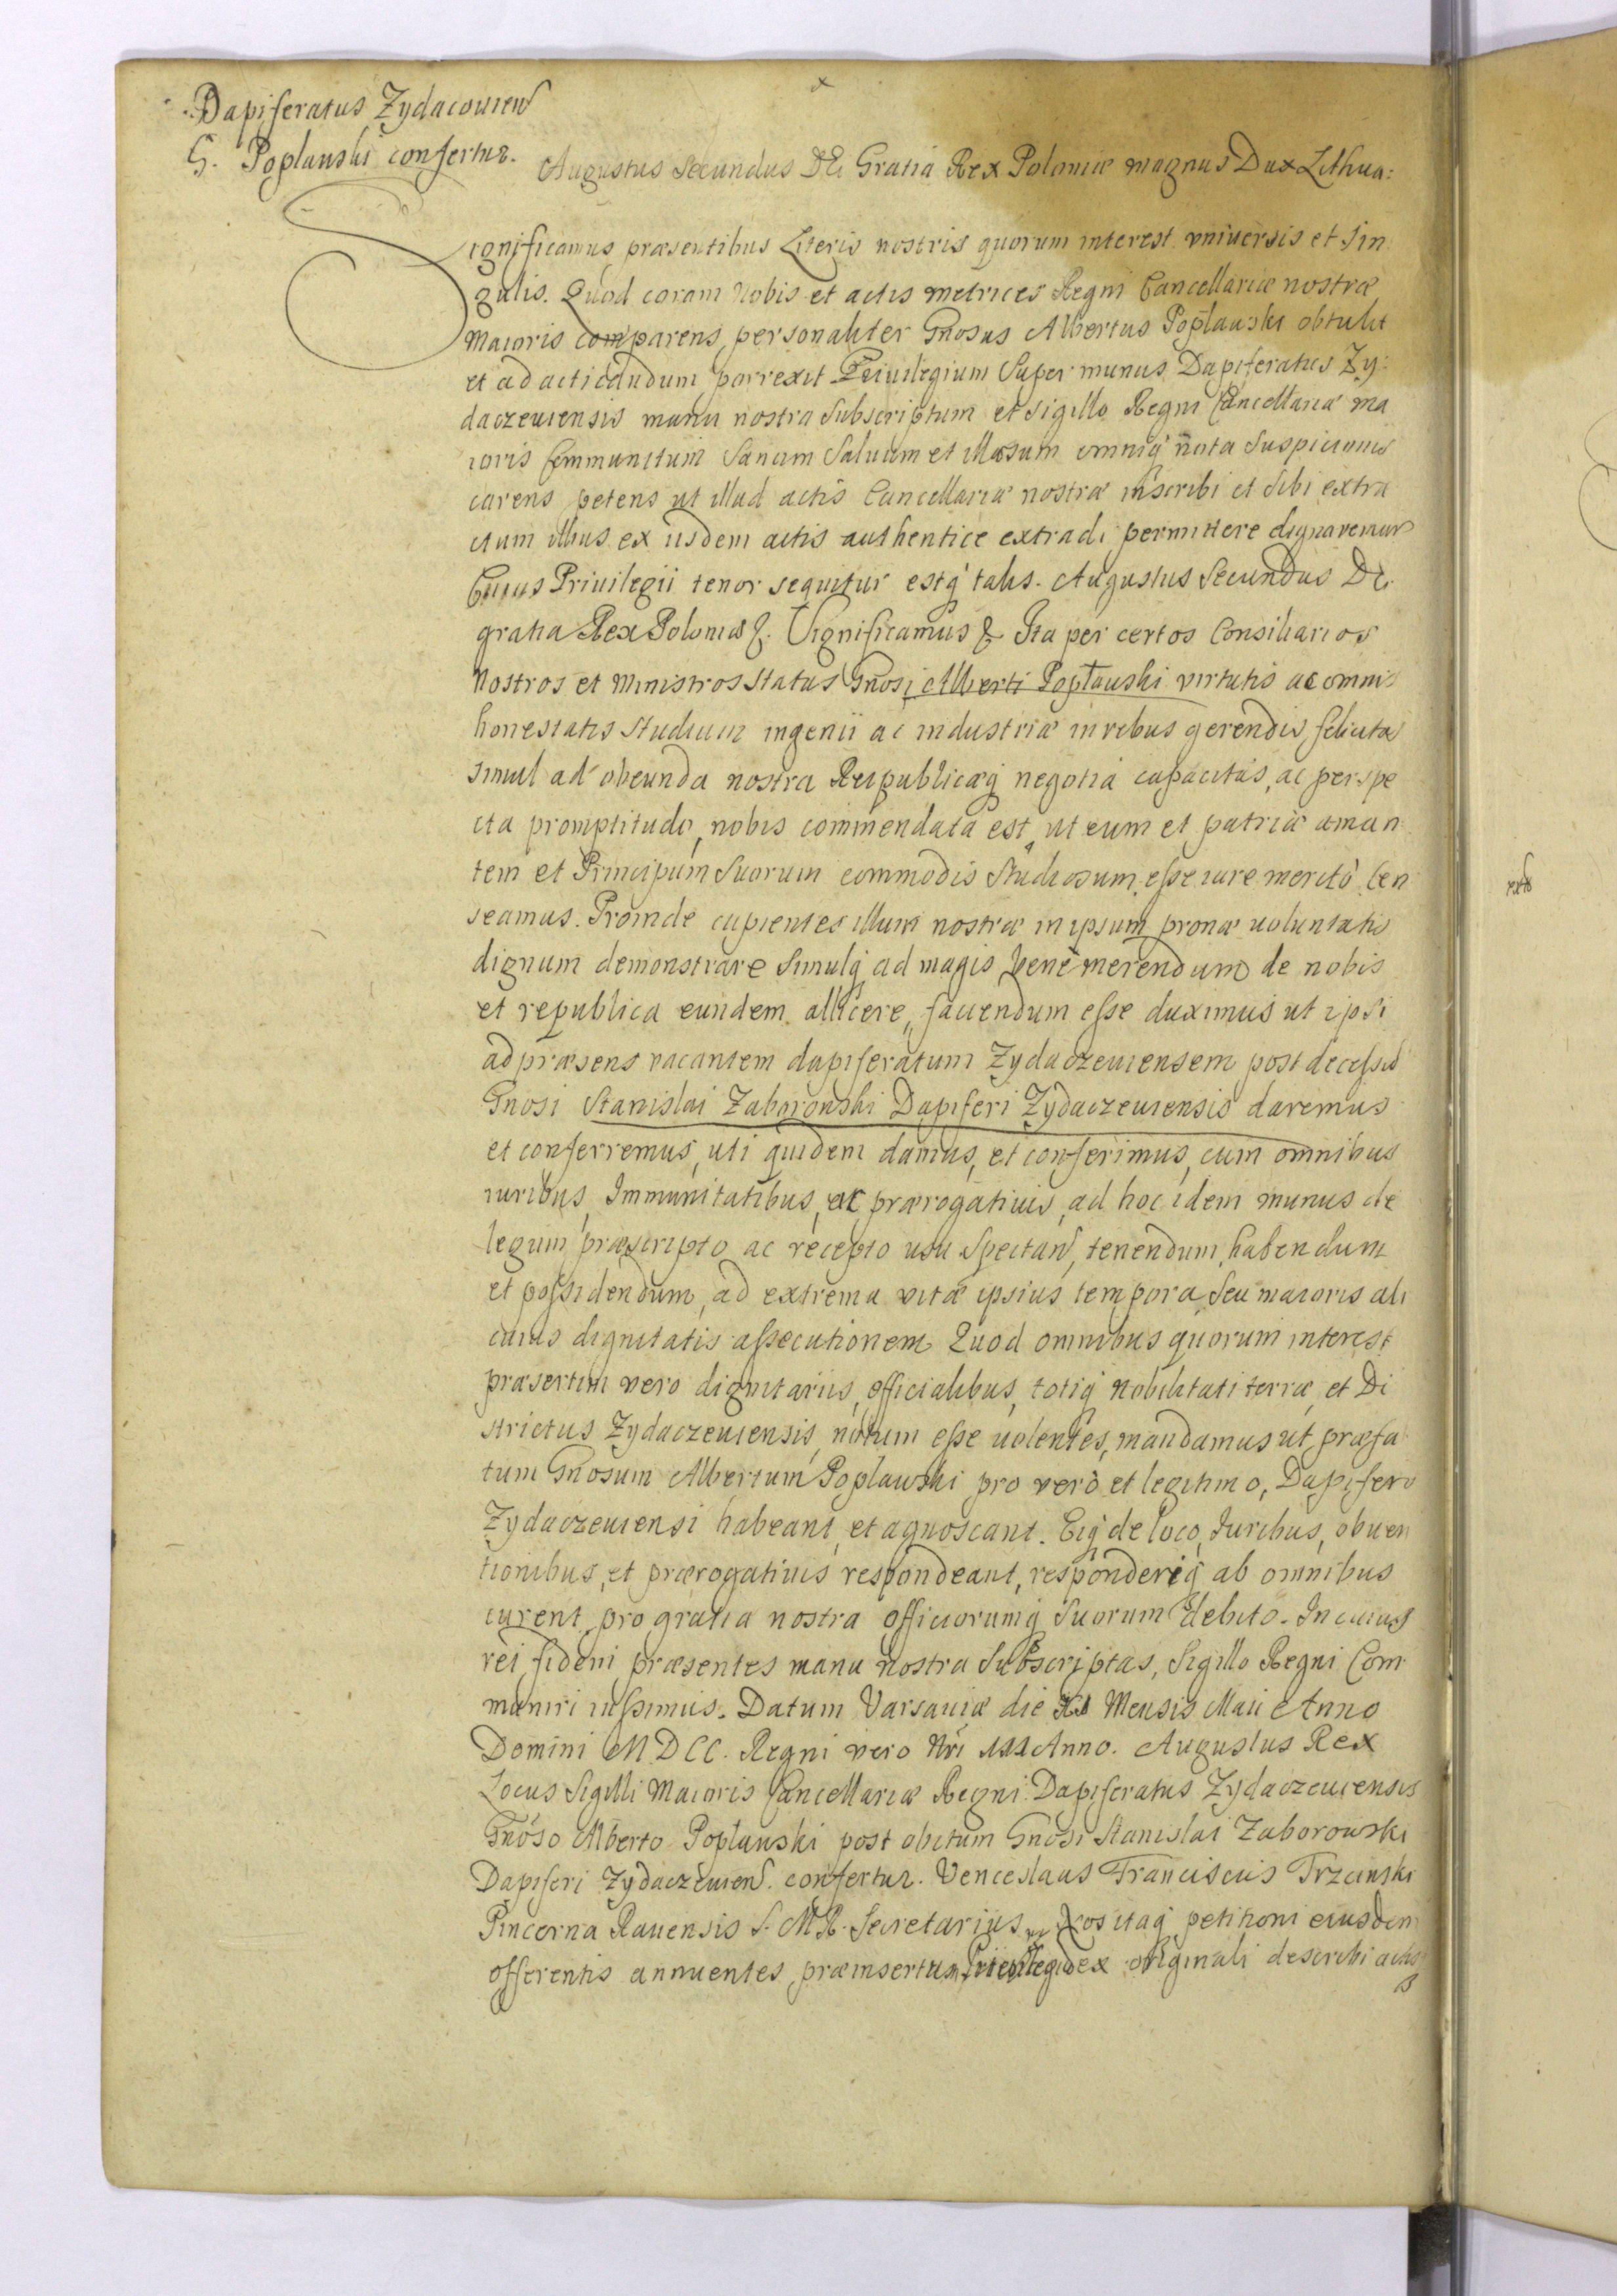 Dapiferatus Zydacouien
G. Poplauski confertur.
Augustus Secundus DEi Gratia Rex Poloniæ magnus Dux Lithua:
Significamus præsentibus Literis nostris quorum interest vniuersis et Sin
gulis. Quod coram Nobis et actis metrices Regni Cancellariæ nostræ
Maioris comparens personaliter Gnosus Albertus Poplauski obtulit
et ad acticandum porrexit Priuilegium Super munus Dapiferatus Zy:
daczeuiensis manu nostra Subscriptum et sigillo Regni Cancellariæ ma
ioris Communitum Sanum Saluum et illæsum omniq' nota Suspicionis
carens petens ut illud actis Cancellariæ nostræ inscribi et Sibi extra
ctum illius ex iisdem actis authentice extradi permittere dignaremur
Cuius Priuilegii tenor sequitur estq' talis. Augustus Secundus Dei
gratia Rex Poloniæ &. Significamus & Ita per certos Consiliarios
Nostros et Ministros Status Gnosi Alberti Popławski virtutis ac omnis
honestatis Studium ingenii ac industriæ in rebus gerendis felicitas
Simul ad obeunda nostra Reipublicæq' negotia capacitas, ac perspe
cta promptitudo, nobis commendata est, ut eum et patriæ aman
tem et Principum Suorum commodis Studiosum esse iure meritò Cen
seamus. Proinde cupientes illum nostræ in ipsum pronæ uoluntatis
dignum demonstrare Simulq' ad magis benè merendum de nobis
et republica eundem allicere, fauendum esse duximus ut ipsi
ad præsens vacantem dapiferatum Zydaczeuiensem post decessum
Gnosi Stanislai Zaborowski Dapiferi Zydaczeuiensis daremus
et conferremus, uti quidem damus, et conferimus, cum omnibus
iuribus, Immunitatibus, ac prærogatiuis, ad hoc idem munus de
legum præscripto ac recepto usu Spectan, tenendum, habendum
et possidendum, ad extrema vitæ ipsius tempora, Seu maioris ali
cuius dignitatis assecutionem Quod omnibus quorum interest
præsertim vero dignitariis, officialibus, totiq' Nobilitati terræ, et Di
strictus Zydaczeuiensis, notum esse uolentes, mandamus ut præfa
tum Gnosum Albertum Poplauski pro verò et legitimo, Dapifero
Zydaczeuiensi habeant, et agnoscant. Eiq' de loco, Iuribus, obuen
tionibus, et prærogatiuis respondeant, responderiq' ab omnibus
curent, pro gratia nostra officiorumq' Suorum debito. In cuius
rei fidem præsentes manu nostra Subscriptas, Sigillo Regni Com
muniri iussimus. Datum Varsauiæ die Mensis Maii Anno
Domini MDCC. Regni vero Nri III Anno. Augustus Rex
Locus Sigilli Maioris Cancellariæ Regni. Dapiferatus Zydaczeuiensis
Gnoso Alberto Poplauski post obitum Gnosi Stanislai Zaborowski
Dapiferi Zydaczeuien. confertur. Venceslaus Franciscus Trzcinski
Pincerna Rauensis S. MR. Secretarius Nos itaq' petitioni eiusdem
offerentis annuentes, præinsertum Priuilegium ex originali describi actis